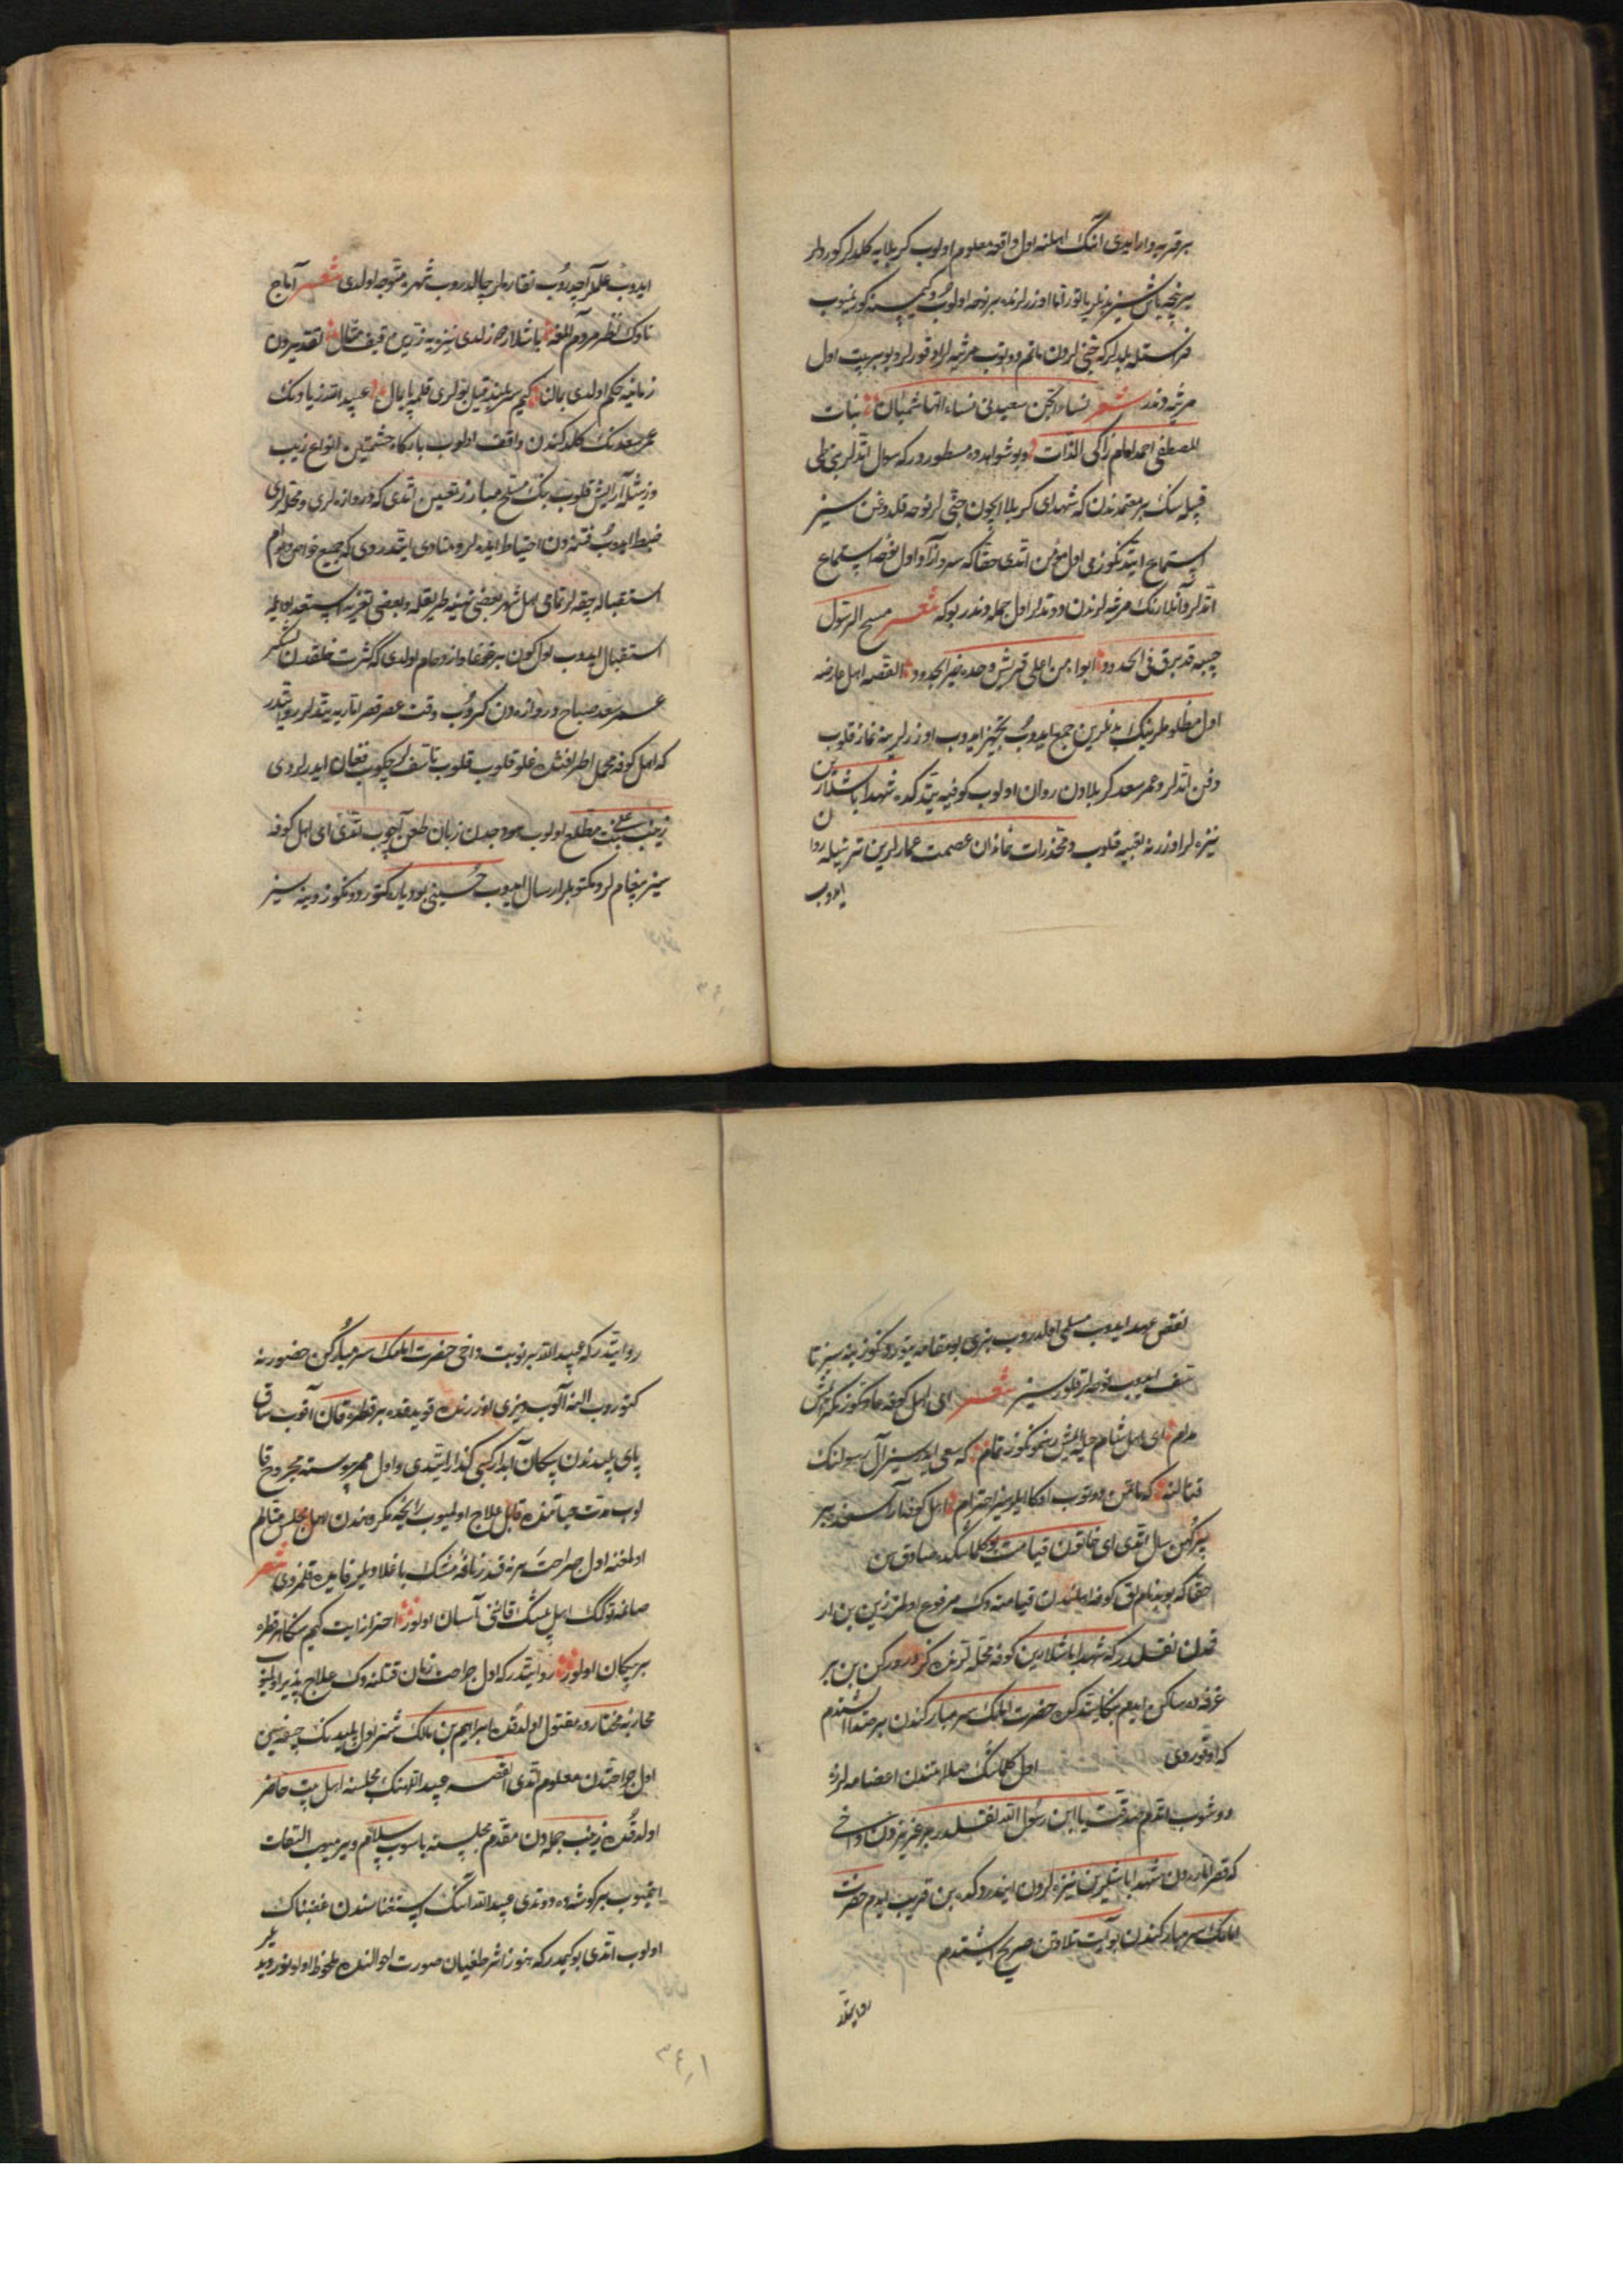 بر قریه وار ایدی انک اهلنه اول واقعه معلوم اولوب کربلایه کلدلر کوردلر
بر نیچه باش سیز بدنلر یاتور اما اوزرلرنده بر نوحه اولوب و کیمسنه کورنمیوب
فراستله بلدلر که جنی لردن ماتم دوتوب مرثیه لر اوقورلر و بو بر بیت اول
مرثیه دندر شعر نساء الجن سعیدن نساء الهاشمیات بنات
المصطفی احمد امام زاکی الذات و بو شواهده مسطوردر که سوال اتدلر بنی طی
قبیله سنک بر معتمدندن که شهدای کربلا ایچون جنی لر نوحه قلدوغن سیز
استماع ایتدنکوزمی اول مؤمن اتدی حقا که سرو آزاد اول نغمه استماع
اتدلر و آنلارنک مرثیه لرندن دوتدلر اول جمله دندر بو که شعر مسح الرسول
جبینه قد برق فی الخدود ابواه من اعلی قریش و جده خیر الجدود القصه اهل عارضه
اول مظلوملرینک بدنلرین جمع ایدوب تجهیز ایدوب اوزرلرینه نماز قلوب
دفن اتدلر و عمر سعد کربلادن روان اولوب کوفیه یتدکده شهدا باشلارین
نیزه لر اوزرنه تعبیه قلوب و مخدرات خاندان عصمت عمارلرین ترتیبله روا
ن
ایدوب
ایدوب علملر آچدروب نقاره لر چالدروب شهره متوجه اولدی شعر آماج
ناوک نظر مردم المغه باشلاره زلدی نیزه یه زرین قیف مثال تقدیردن
زمانیه حکم اولدی بمان کیم سربلند قیل بولری قلمه پایمال عبید الله زیادنک
عمر سعدنک کلدکندن واقف اولوب بارکاه حشمتین انواع زیب
و زینتله آرایش قلوب بنک مسلح مبارز تعیین اتدی که دروازه لری و محله لری
ضبط ایدوب فتنه دن احتیاط ایده لر و منادی ایتدردی که جمیع خواص و عوام
استقباله چقه لر تمامی اهل شهر بعضی نهینه طریقله و بعضی تعزیه استعداد ایله
استقبال ایدوب اول کون بر غوغا و ازدحام اولدی که کثرت خلقدن لشکر
عمر سعد صباح دروازه دن کیروب وقت عصر قصر اماریه یتدلر روایتدر
که اهل کوفه محمل اطرافنده غلو قلوب قلوب تاسف لر چکوب فغان ایدرلردی
زینب بنت علی مطلع اولوب هودجدن زبان طعن آچوب اتدی ای اهل کوفه
سیز پیغام لر و مکتوبلر ارسال ایدوب حسینی بو دیاره کتوردونکوز و ینه سیز
نقض عهد ایدوب مسلمی اولدردوب بیزی بو مقامه یتوردونکوز ینه سیز تا
سف ایدوب نوحه لر قلورسیز شعر ای اهل کوفه عادتکوز مکر ایمش
مدام ای اهل شام حیله ایمش رسمکوز تمام که سعی ایدرسیز آل رسولنک
قتالنه که ماتمن دوتوب اوکا ایلرسیز احترام اهل کوفه آراسنده بر
پیر کهن سال اتدی ای خاتون قیامت بو کلامکده صادق سن
حقا که بو بدنام لق کوفه اهلندن قیامته دک مرفوع اولمز زین بن ار
قمدن نقلدر که شهدا باشلارین کوفه محله لرنده کزدورورکن بن بر
غرفه ده ساکن ایدم بکا یتدکده حضرت امامک سر مبارکندن بر صدا اشتدم
که اوقوردی اول کلامنک صلابتندن اعضامه لرزه
دوشوب اتدم صدقت یا ابن رسول الله نقلدر بر عزیزدن داخی
که قصر امارەده شهدا باشلرین نیزه لردن ایندردکده بن قریب ایدم حضرت
امامک سر مبارکندن بو آیت تلاوتن صریح اشتدم
روایتدر
روایتدر که عبید الله بر نوبت داخی حضرت امامک سر مبارکن حضورنه
کتوردوب النه آلوب دیزی اوزرنده قویدقده بر قطره قان آقوب ساق
پای پلیدندن پیکان آبدار کبی کذار ایتدی و اول ممر پیوسته مجروح قا
لوب مدت حیاتنده قابل علاج اولمیوب رایحه مکروهندن اهل مجلس متالم
اولمغنه اول جراحت هر نه قدر نافه مشک باغلادیلر فایده قلمزدی شعر
صانمه توکمک اهل عشک قانن آسان اولور احتراز ایت کیم سکا هر قطره
بر پیکان اولور روایتدر که اول جراحت زمان قتلنه دک علاج پذیر اولمیوب
محاربه مختارده مقتول اولدقده ابراهیم بن مالک شتر اول پلیدنک جیفه سین
اول جراحتدن معلوم اتدی القصه عبید اللهنک مجلسنه اهل بیت حاضر
اولدقده زینب جمله دن مقدم مجلسنه باسوب سلام ویرمیوب التفات
ایتمیوب بر کوشه ده دوتدی عبید الله انک استغناسندن غضبناک
اولوب اتدی بو کیمدر که هنوز اثر طغیان صورت احوالنده ملحوظ اولونور دیدیلر